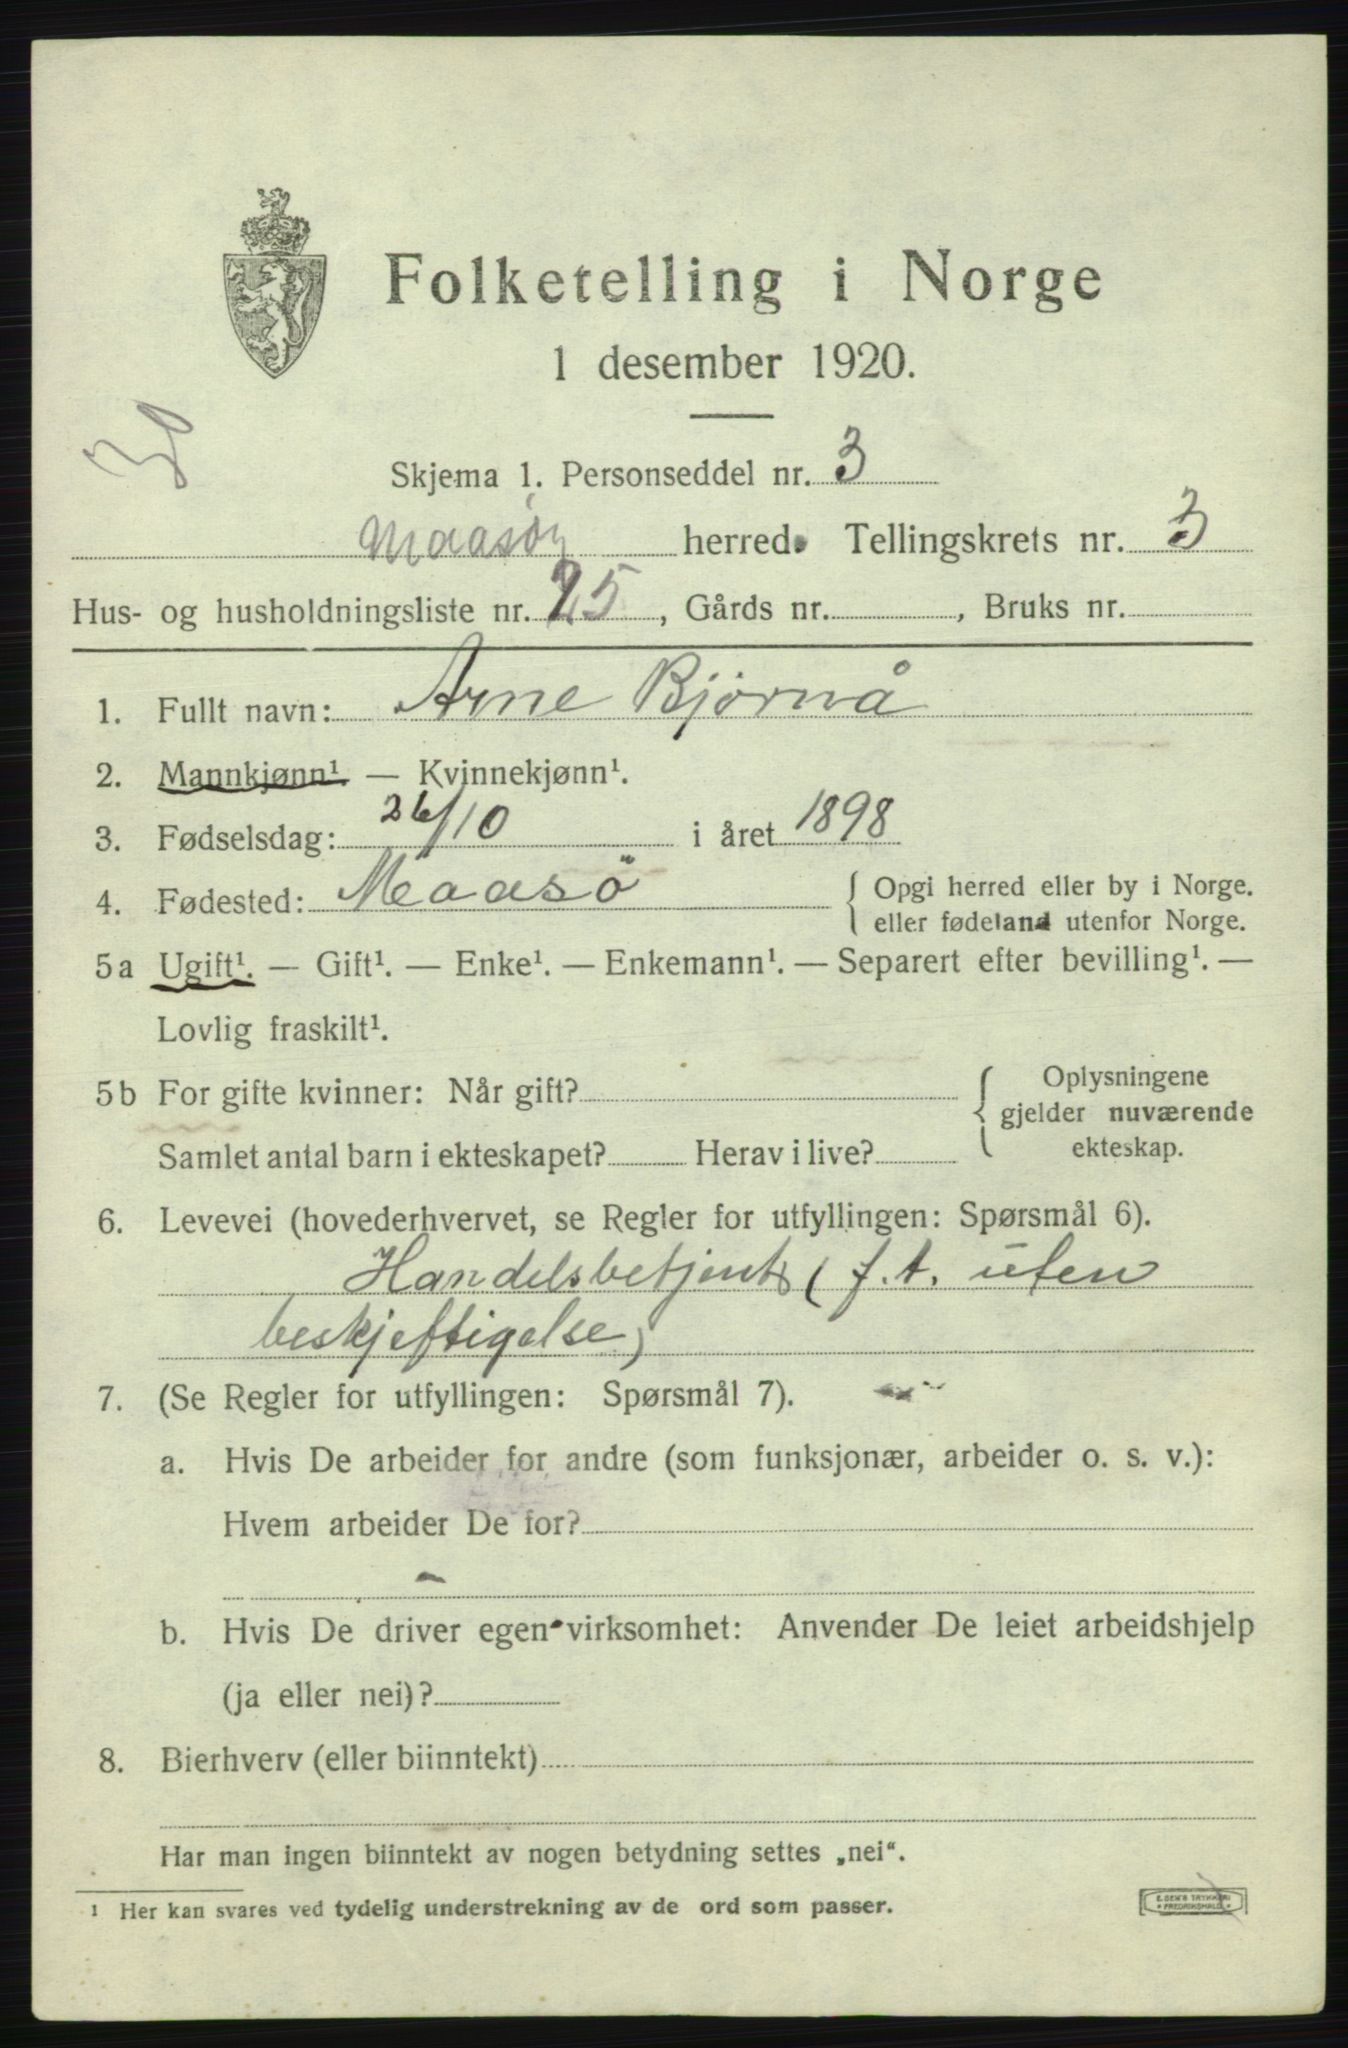 Folketelling i Norge
1 desember 1920.
Skjema 1. Personseddel nr. 3
Maasøy herred. Tellingskrets nr. 3
Hus- og husholdningsliste nr. 25, Gårds nr. , Bruks nr.
1. Fullt navn: Arne Bjørnå
2. Mannkjønn¹. — Kvinnekjønn¹.
3. Fødselsdag: 26/10 i året 1898
4. Fødested: Maasö { Opgi herred eller by i Norge.
eller fødeland utenfor Norge.
5a Ugift¹. — Gift¹. — Enke¹. — Enkemann¹. — Separert efter bevilling¹. —
Lovlig fraskilt¹.
5b For gifte kvinner: Når gift? { Oplysningene
gjelder nuværende
Samlet antal barn i ekteskapet? Herav i live? ekteskap.
6. Levevei (hovederhvervet, se Regler for utfyllingen: Spørsmål 6).
Handelsbetjent (f.t. uten
beskjeftigelse)
7. (Se Regler for utfyllingen: Spørsmål 7).
a. Hvis De arbeider for andre (som funksjonær, arbeider o. s. v.):
Hvem arbeider De for?
b. Hvis De driver egen virksomhet: Anvender De leiet arbeidshjelp
(ja eller nei)?
8. Bierhverv (eller biinntekt)
Har man ingen biinntekt av nogen betydning settes „nei“.
1 Her kan svares ved tydelig understrekning av de ord som passer.